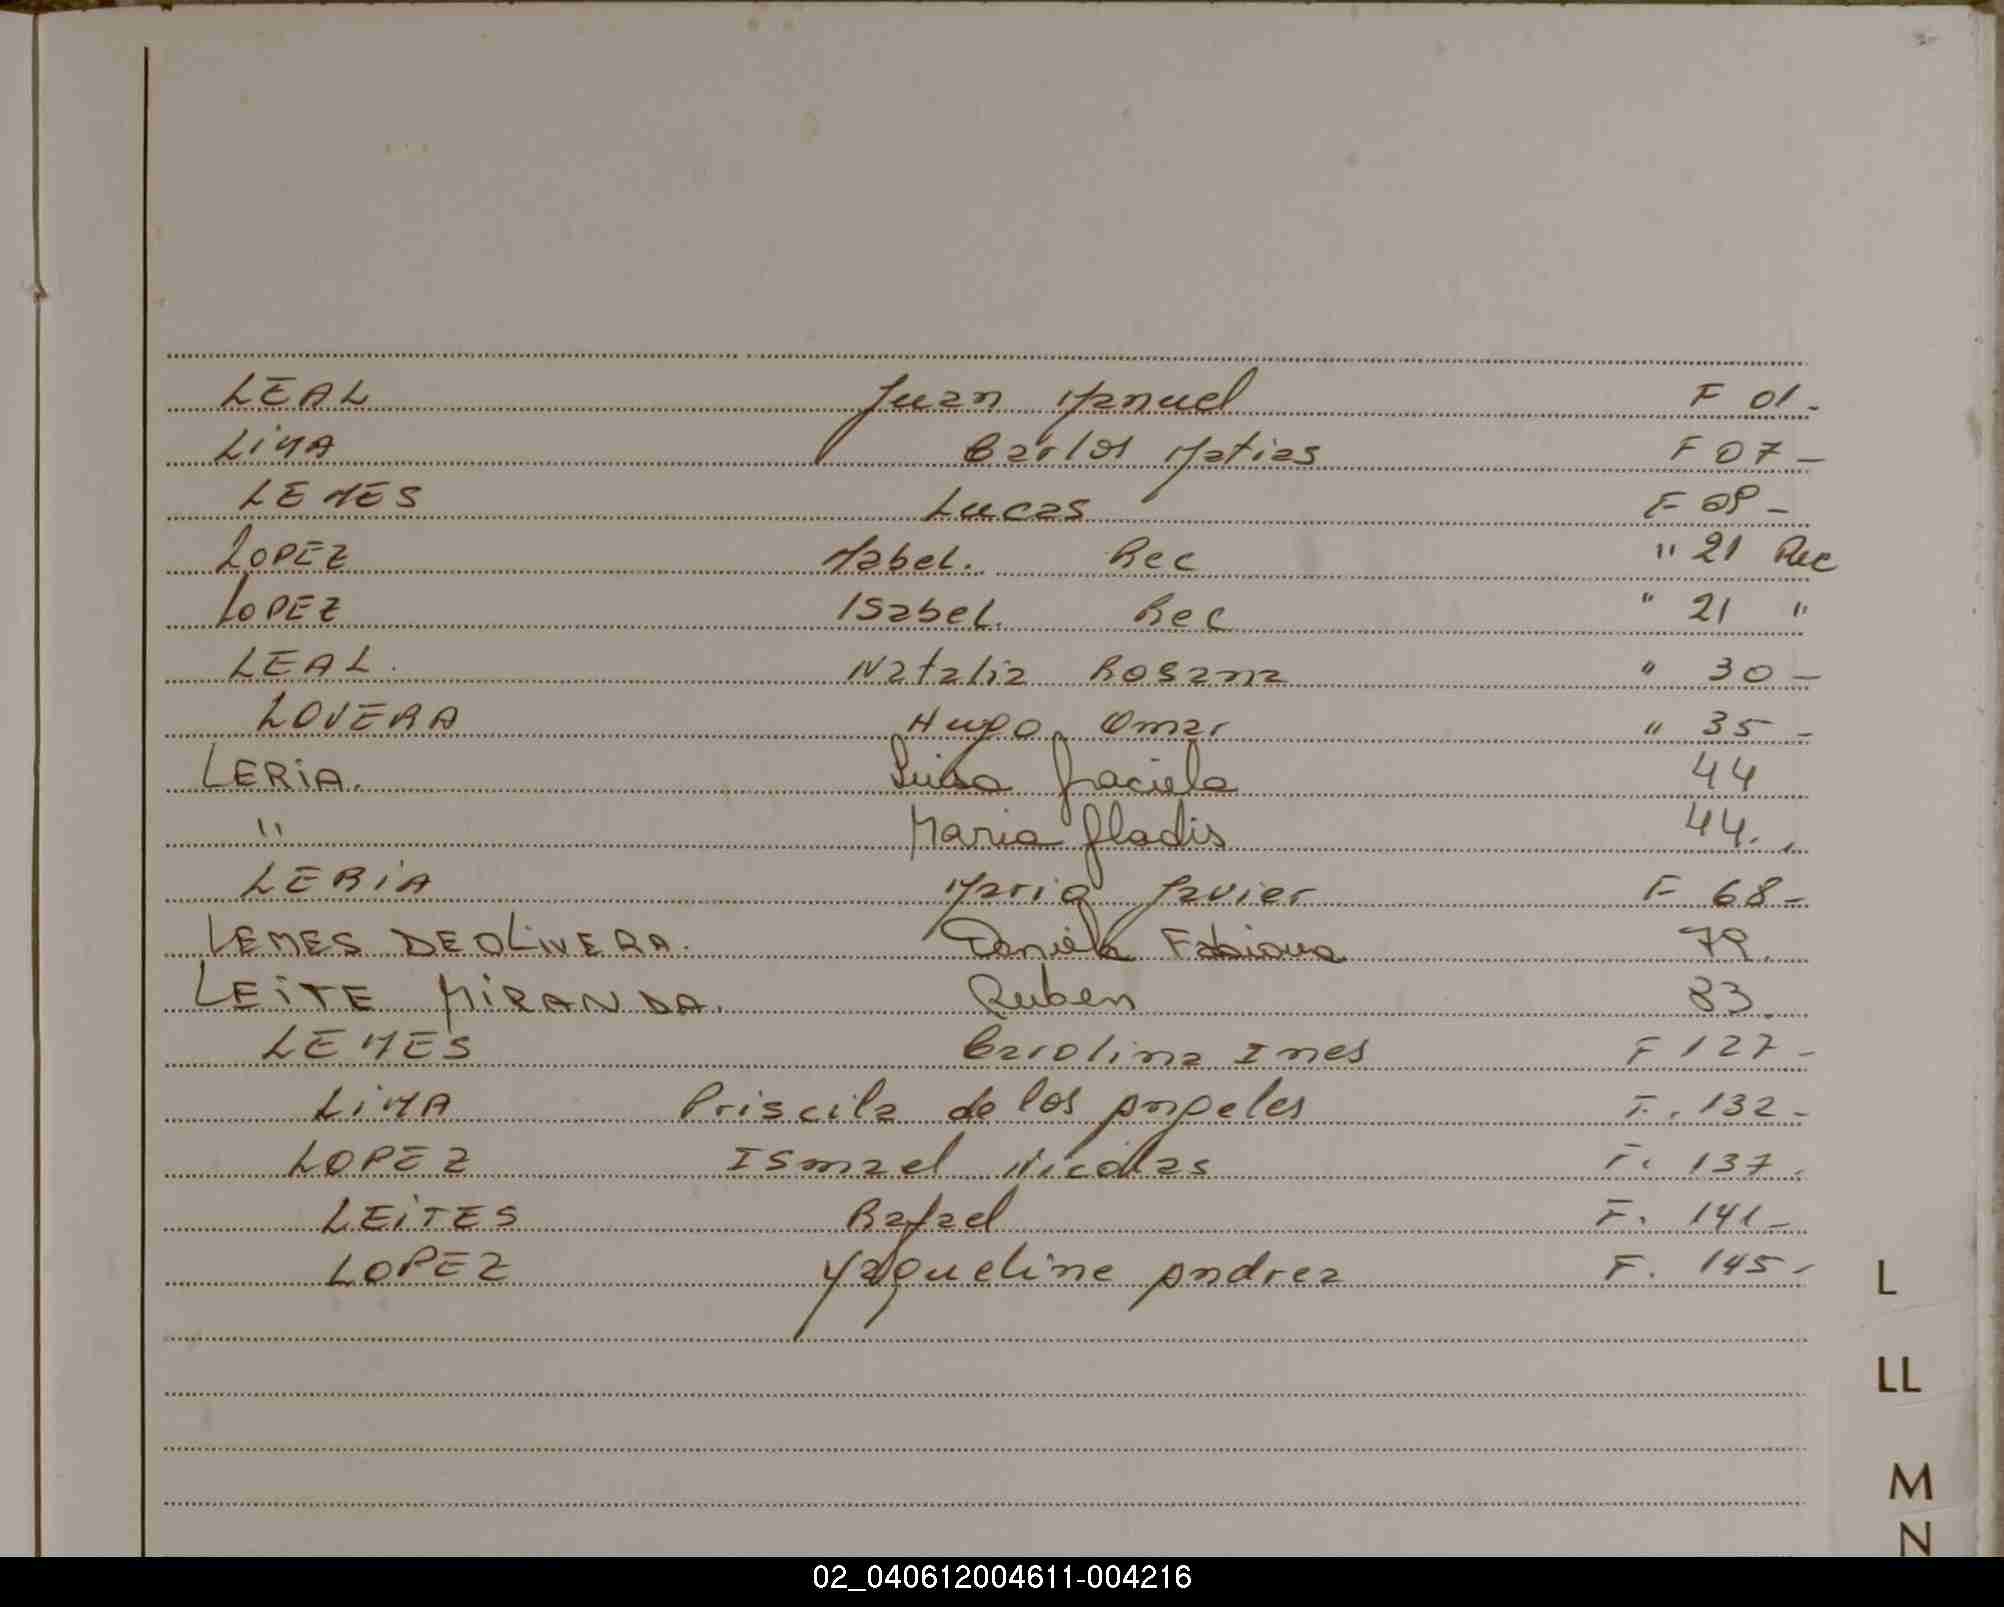 LEAL Juan Manuel F 01-
LiMA Carlos Matias F 07-
LEMES Lucas F 08-
LOPEZ Mabel. Rec " 21 Rec
LOPEZ ISabel. Rec " 21 "
LEAL. Natalia Rosana " 30-
LOVERA Hugo Omar " 35-
LERiA. Luisa Graciela 44
" Maria Gladis 44.
LERiA Mario Javier F 68-
LEMES DEOLiVERA. Daniela Fabiana 79.
LEiTE MiRANDA. Ruben 83.
LEMES Carolina Ines F 127-
LiMA Priscila de los Angeles F. 132-
LOPEZ ISmael Nicolas F. 137.
LEiTES Rafael F. 141-
LOPEZ Yaqueline Andrea F. 145-
L
LL
M
N
02_040612004611-004216